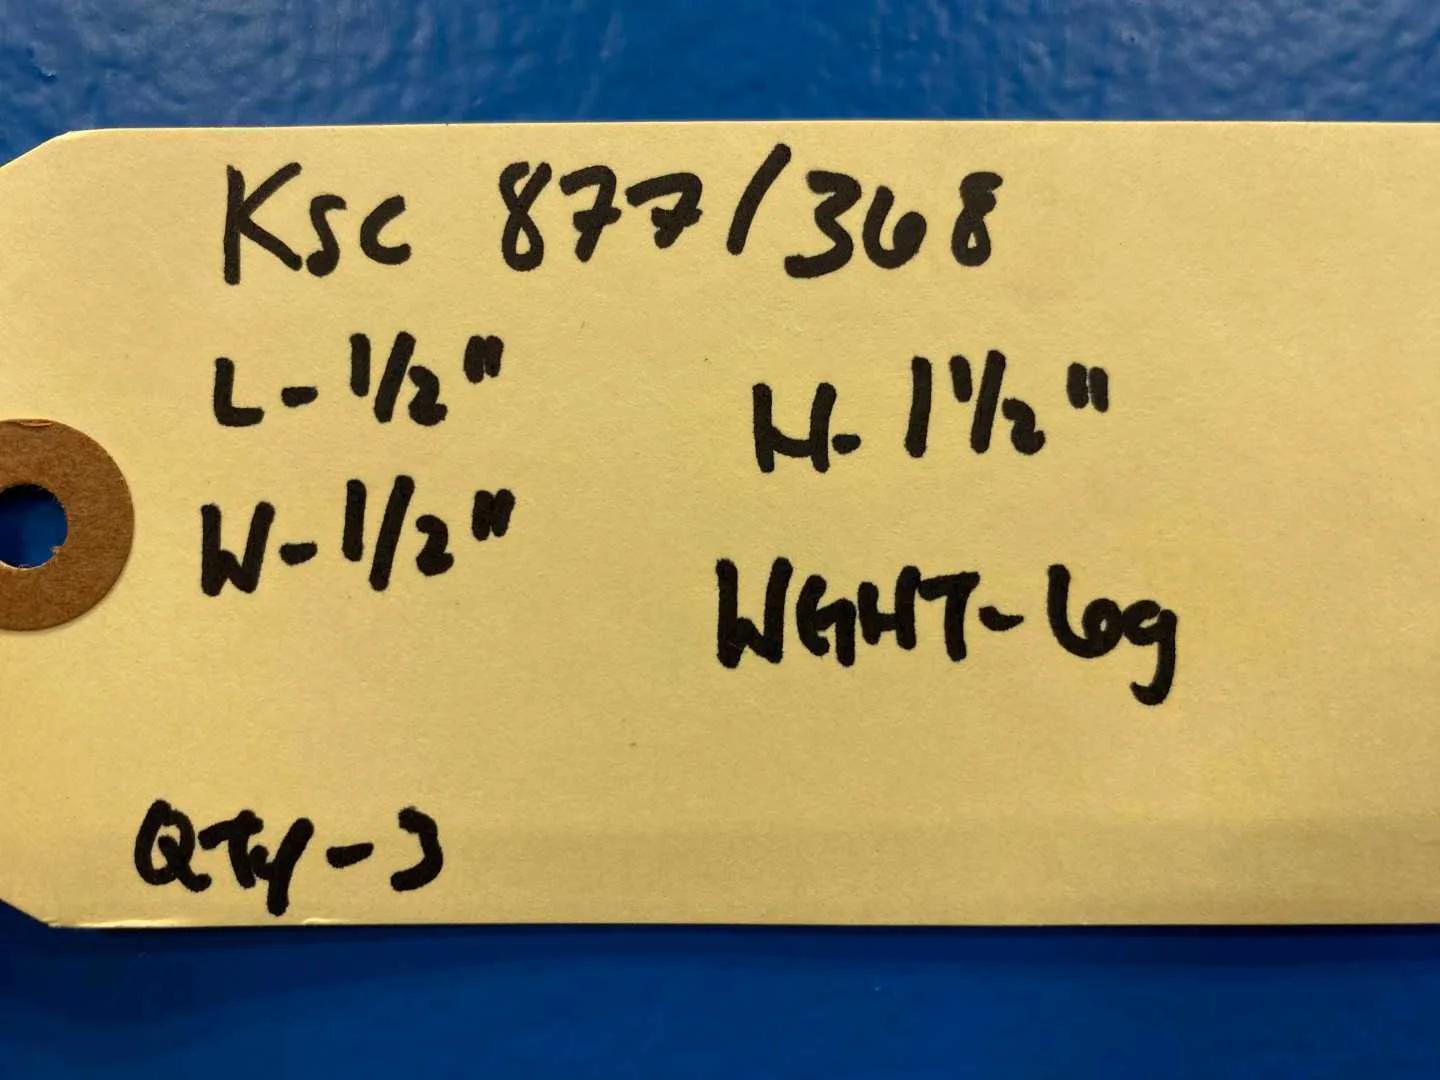 KSC 877/368
L-1/2" H-1 1/2"
W-1/2"
WGHT-6g
QTY-3